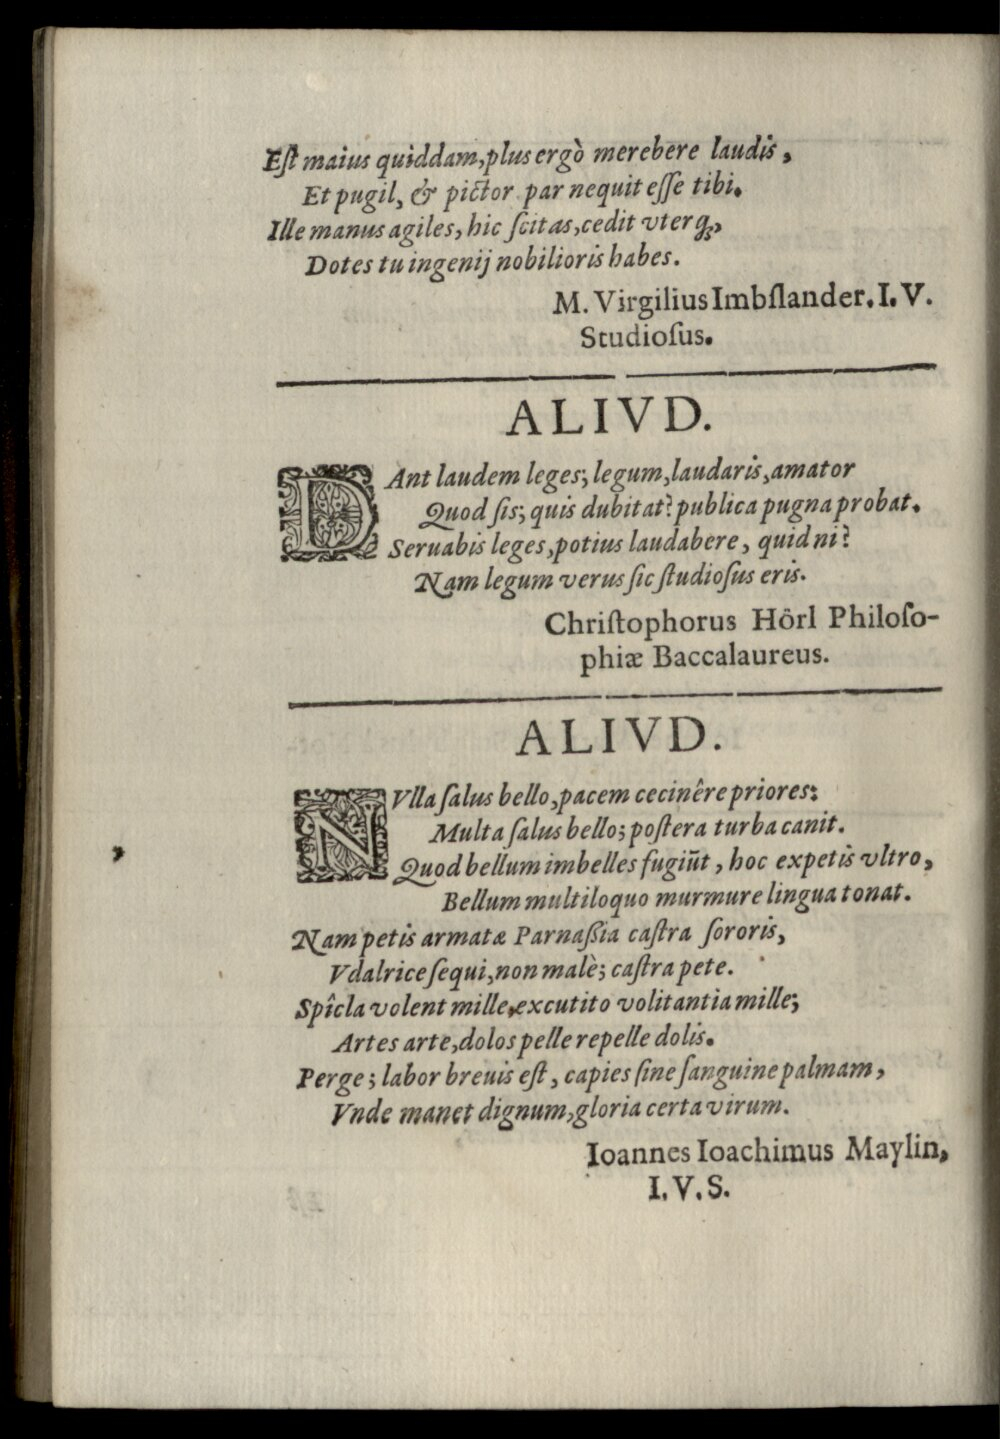 Eſt maius quiddam, plus ergò merebere laudis,
Et pugil, & pictor par nequit eſſe tibi.
Ille manus agiles, hic ſcitas, cedit vterq;,
Dotes tu ingenij nobilioris habes.
M. Virgilius Imbſlander. I. V.
Studioſus.
ALIVD.
DAnt laudem leges; legum, laudaris, amator
Quod ſis; quis dubitat? publica pugna probat.
Seruabis leges, potius laudabere, quid ni?
Nam legum verus ſic ſtudioſus eris.
Chriſtophorus Hôrl Philoſo-
phiæ Baccalaureus.
ALIVD.
NVlla ſalus bello, pacem cecinêre priores:
Multa ſalus bello; poſtera turba canit.
Quod bellum imbelles fugiūt, hoc expetis vltro,
Bellum multiloquo murmure lingua tonat.
Nam petis armatæ Parnaßia caſtra ſororis,
Vdalrice ſequi, non malè; caſtra pete.
Spîcla volent mille, excutito volitantia mille;
Artes arte, dolos pelle repelle dolis.
Perge; labor breuis eſt, capies ſine ſanguine palmam,
Vnde manet dignum, gloria certa virum.
Ioannes Ioachimus Maylin,
I. V. S.